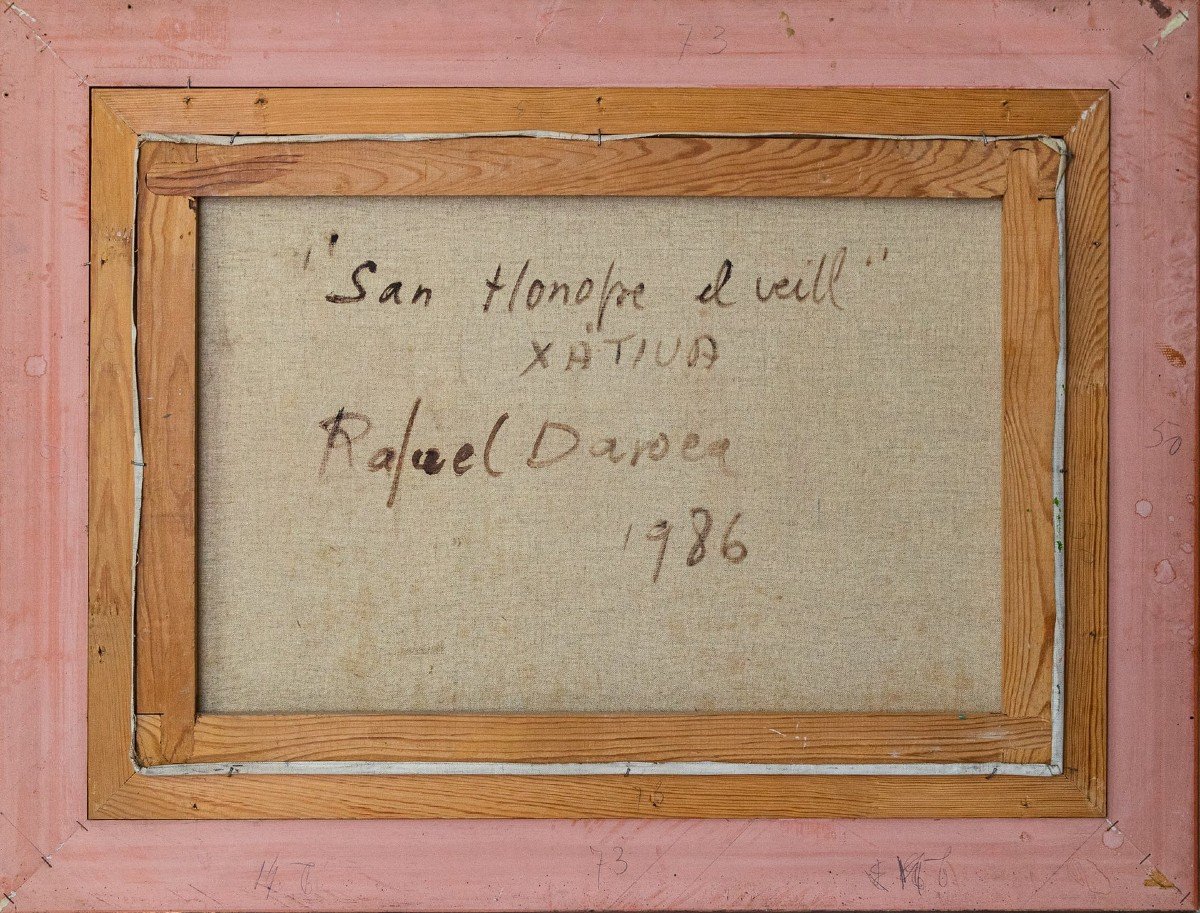 73
"San Honofre el veill"
XÀTIVA
Rafael Daroca
1986
50
76
73